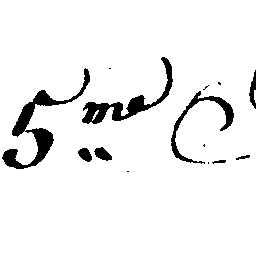 5me C